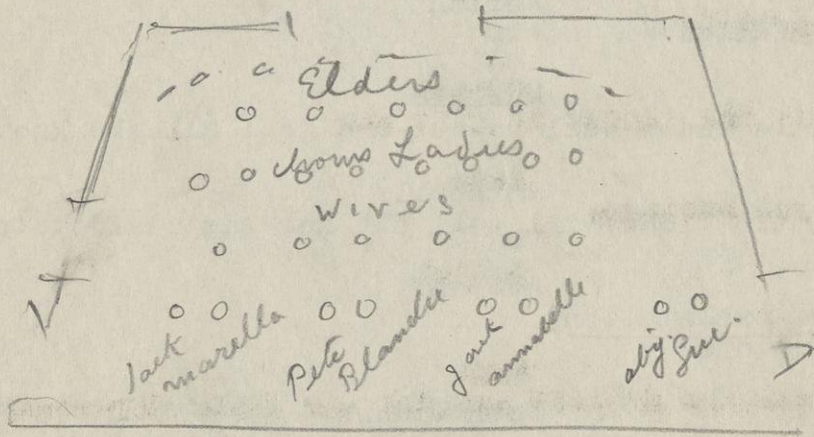 Elders
Ladies
Wives
Jack
marella
Pete
Blanche
Jack
annabelle
abij. Gul.